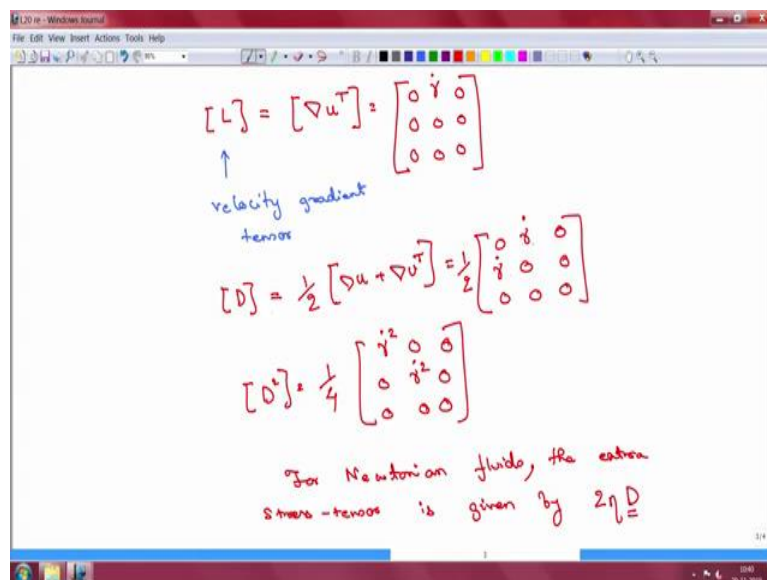 L20 re - Windows Journal
File Edit View Insert Actions Tools Help
[L] = [∇u^T] = [0 γ̇ 0
0 0 0
0 0 0]
↑
velocity gradient
tensor
[D] = 1/2 [∇u + ∇u^T] = 1/2 [0 γ̇ 0
γ̇ 0 0
0 0 0]
[D²] = 1/4 [γ̇² 0 0
0 γ̇² 0
0 0 0]
For Newtonian fluids, the extra
stress-tensor is given by 2η D
3/4
10:40